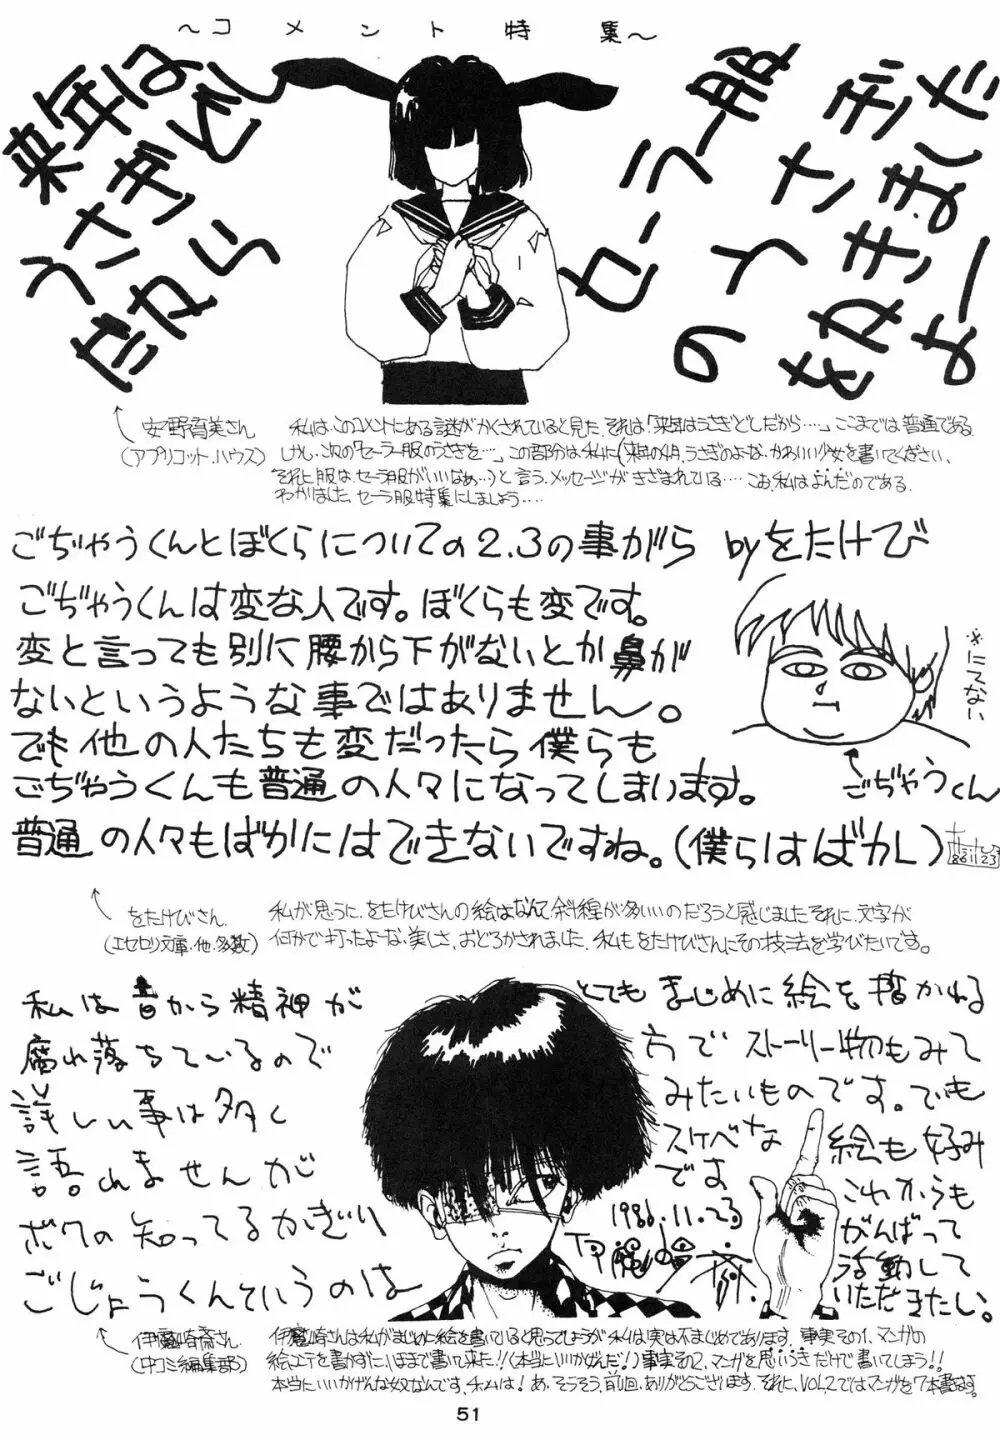 ～コメント特集～
来年は
うさぎどし
だから
セーラー服
のうさぎ
をかきまし
だよー
安野育美さん
(アプリコット・ハウス)
私は、このコメントにある謎がかくされていると見た。それは「来年はうさぎどしだから‥‥」ここまでは普通である。
しかし、次の「セーラー服のうさぎを…」この部分は、私に(来年の4月、うさぎのよーな、かわいい少女を書いてください、
それに服は、セーラ服がいいなぁ…)と言う、メッセージがきざまれている‥‥こお、私はよんだのである。
わかりました、セーラ服特集にしましょう‥‥
ごぢゃうくんとぼくらについての2.3の事がら byをたけび
ごぢゃうくんは変な人です。ぼくらも変です。
変と言っても別に腰から下がないとか鼻が
ないというような事ではありません。
でも他の人たちも変だったら僕らも
ごぢゃうくんも普通の人々になってしまいます。
普通の人々もばかにはできないですね。(僕らはばかし)
86.11.23
※にてない
ごぢゃうくん
をたけびさん
(エセセリ文庫・他・多数)
私が思うに、をたけびさんの絵はなんて斜線が多いいのだろうと感じました。それに、文字が
何かで打ったよーな、美しさ、おどろかされました。私も、をたけびさんにその技法を学びたいです。
私は昔から精神が
腐れ落ちているので
詳しい事は多く
語れませんが
ボクの知ってるかぎり
ごじょうくんていうのは
とてもまじめに絵を描かれる
方でストーリー物もみて
みたいものです。でも
スケベな絵も好み
ではこれからも
がんばって
活動して
いただきたい。
1986.11.23
伊魔崎斎
伊魔崎斎さん
(中コミ編集部)
伊魔崎さんは私がまじめに絵を書いていると思ってしょうが、私は実は不まじめであります。事実その1、マンガの
絵コンテを書かずに、いままで書いて来た!!(本当にいいかげんだ!)事実その2、マンガを思いつきだけで書いてしまう!!
本当にいいかげんな奴なんです、私ムは!あ、そうそう、前回、ありがとうございます。それに、VOL.2ではマンガを7本書きます。
51